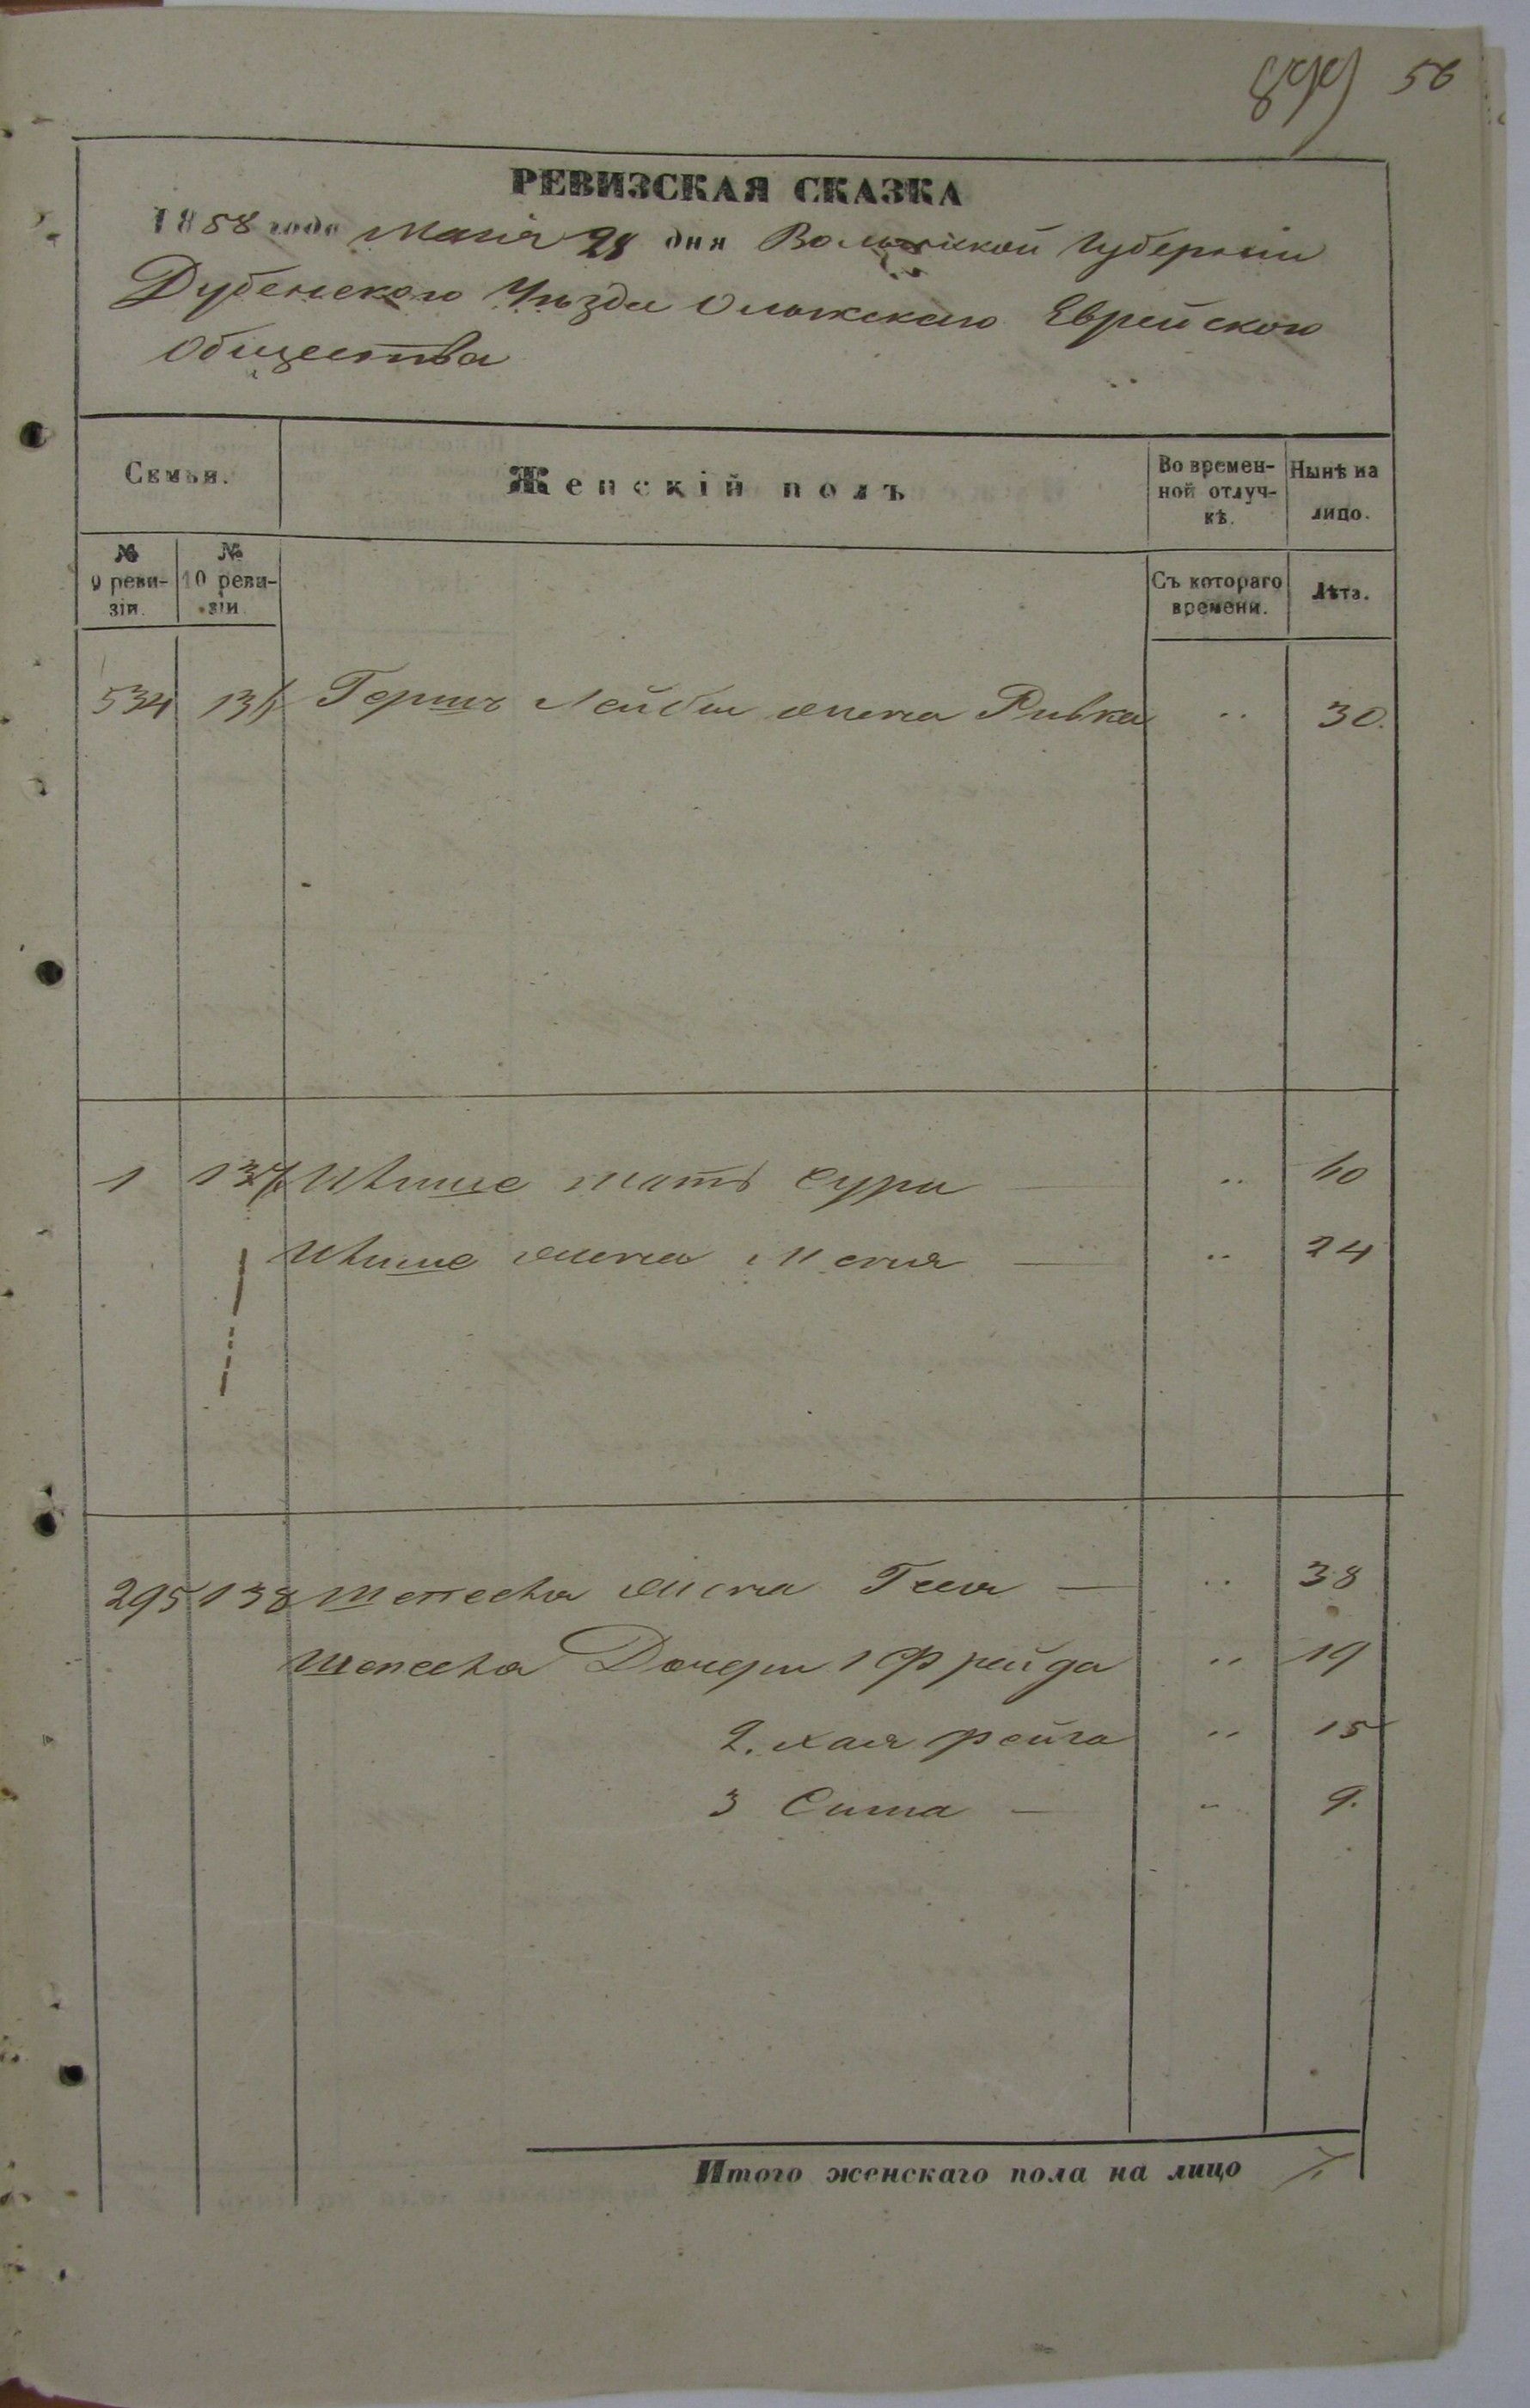 899 56
РЕВИЗСКАЯ СКАЗКА
1858 года Маія 28 дня Волынской Губерніи
Дубенского Уѣзда Олыкскаго Еврейского
Общества
Семья.
Женскій полъ
Во времен-
ной отлуч-
кѣ.
Нынѣ на
лицо.
№
9 реви-
зіи.
№
10 реви-
зіи
Съ котораго
времени.
Лѣта.
534 136 Гершъ Лейбы жена Ривка " 30.
1 137 мать Сура — "
жена — " 24
295 138 жена — " 38
Дочери 1 Фрейда " 19
2. Хая Фейга " 15
3 Сима — " 9.
Итого женскаго пола на лицо 7